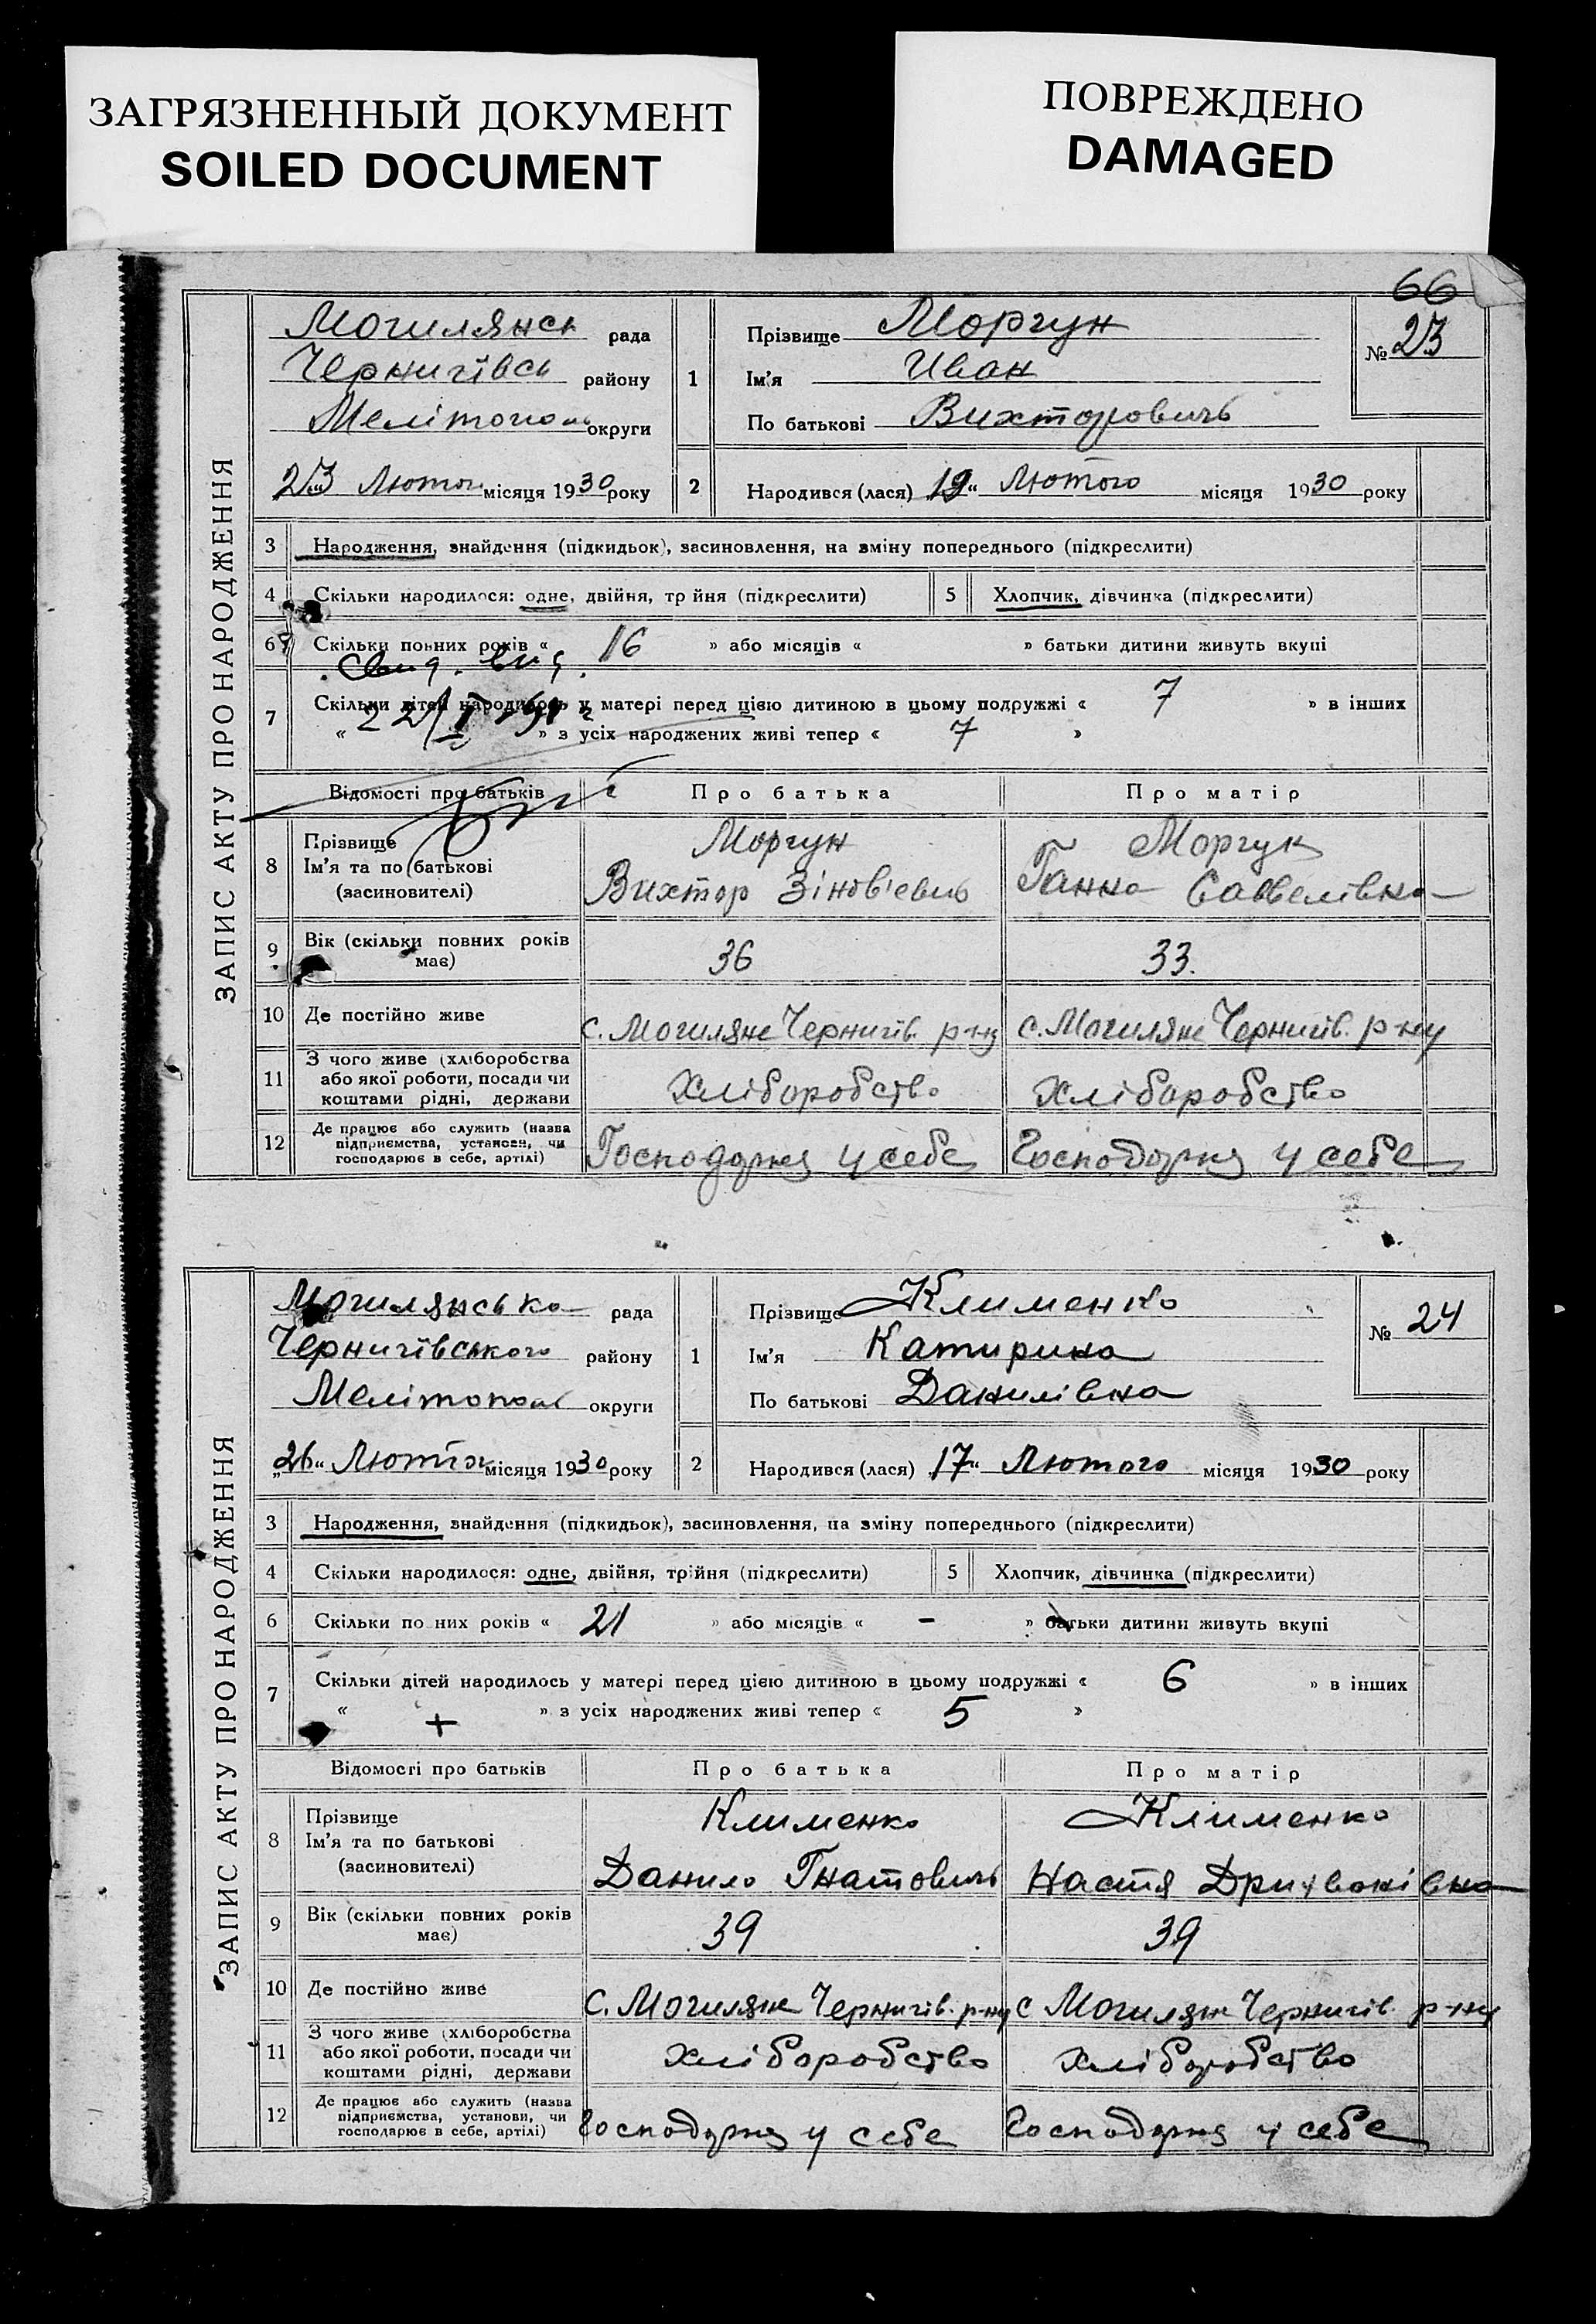 ЗАГРЯЗНЕННЫЙ ДОКУМЕНТ
SOILED DOCUMENT
ПОВРЕЖДЕНО
DAMAGED
66
ЗАПИС АКТУ ПРО НАРОДЖЕННЯ
Могилянськ рада
Чернигівськ району
Мелітополь округи
23 Лютог місяця 1930 року
1 Прізвище Моргун
Ім'я Иван
По батькові Вихторовичь
№ 23
2 Народився (лася) 19 " Лютого місяця 1930 року
3 Народження, знайдення (підкидьок), засиновлення, на зміну попереднього (підкреслити)
4 Скільки народилося: одне, двійня, трійня (підкреслити) 5 Хлопчик, дівчинка (підкреслити)
6 Скільки повних років « 16 » або місяців « » батьки дитини живуть вкупі
7 Скільки дітей народилось у матері перед цією дитиною в цьому подружжі « 7 » в інших
« » з усіх народжених живі тепер « 7 »
Відомості про батьків Про батька Про матір
8 Прізвище Моргун Моргун
Ім'я та по батькові
(засновителі) Вихтор Зінов'евич Ганна Саввелівна
9 Вік (скільки повних років має) 36 33.
10 Де постійно живе с. Могиляне Чернигів. р-ну с. Могиляне Чернигів. р-ну
11 З чого живе (хліборобства
або якої роботи, посади чи
коштами рідні, держави Хліборобство Хліборобство
12 Де працює або служить (назва
підприємства, установи, чи
господарює в себе, артілі) Господарює у себе Господарює у себе
ЗАПИС АКТУ ПРО НАРОДЖЕННЯ
Могилянсько рада
Чернигівського району
Мелітополь округи
„26" Лютого місяця 1930 року
1 Прізвище Клименко
Ім'я Катирина
По батькові Данилівна
№ 24
2 Народився (лася) 17 " Лютого місяця 1930 року
3 Народження, знайдення (підкидьок), засиновлення, на зміну попереднього (підкреслити)
4 Скільки народилося: одне, двійня, трійня (підкреслити) 5 Хлопчик, дівчинка (підкреслити)
6 Скільки повних років « 21 » або місяців « - » батьки дитини живуть вкупі
7 Скільки дітей народилось у матері перед цією дитиною в цьому подружжі « 6 » в інших
« + » з усіх народжених живі тепер « 5 »
Відомості про батьків Про батька Про матір
8 Прізвище Клименко Клименко
Ім'я та по батькові
(засиновителі) Данило Гнатовичь Настя
9 Вік (скільки повних років має) 39 39
10 Де постійно живе С. Могиляне Чернигів. р-ну с Могиляне Чернигів. р-ну
11 З чого живе (хліборобства
або якої роботи, посади чи
коштами рідні, держави хліборобство хліборобство
12 Де працює або служить (назва
підприємства, установи, чи
господарює в себе, артілі) Господарює у себе Господарює у себе